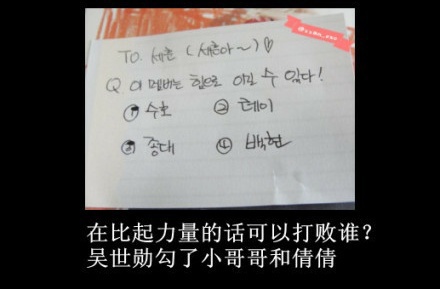 TO. 세훈 (세훈아~)♡
Q 이 멤버는 힘으로 이길 수 있다!
① 수호 ② 레이
③ 종대 ④ 백현
在比起力量的话可以打败谁?
吴世勋勾了小哥哥和倩倩